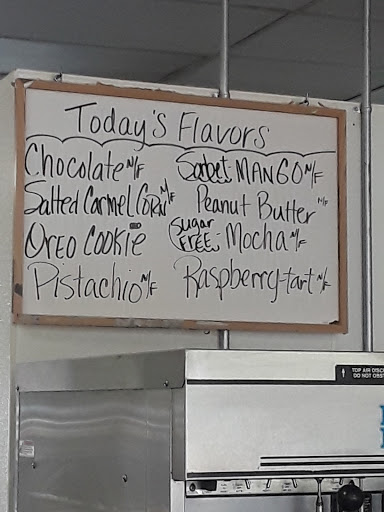 Today's Flavors
Chocolate N/F
Salted Carmel Corn N/F
Oreo Cookie
Pistachio N/F
Sorbet MANGO N/F
Peanut Butter N/F
Sugar FREE: Mocha N/F
Raspberry-tart N/F
TOP AIR DISC
DO NOT OBST